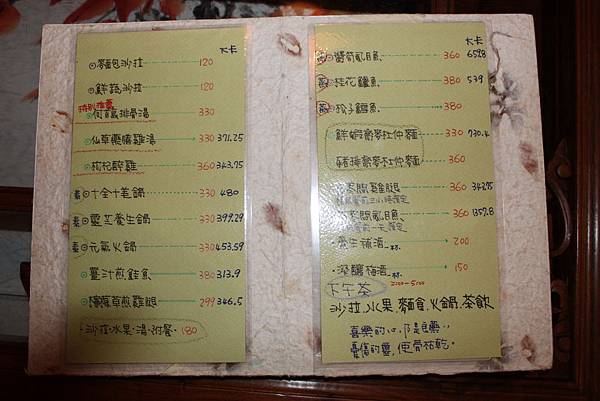 大卡
⊙麵包沙拉 120
⊙鮮蔬沙拉 120
特別推薦
⊙何首烏排骨湯 330
⊙仙草燉雞湯 330 371.25
⊙枸杞醉雞 360 343.75
素⊙十全十美鍋 330 480
素⊙靈芝養生鍋 330 399.29
素⊙元氣火鍋 330 453.59
⊙薑汁煎鮭魚 380 313.9
草煎雞腿 299 346.5
沙拉.水果.湯.附餐.180
大卡
醬筍虱目魚 360 652.8
桂花鱸魚 380 539
松子鱈魚 380
鮮蝦蕎麥杜仲麵 330 730.4
豬排蕎麥杜仲麵 360
燜雞腿 360 342.75
燜虱目魚 360 1357.8
養生補酒.杯 200
梅酒.杯 150
下午茶 2:00-5:00
沙拉.水果.麵食.火鍋.茶飲
喜樂的心,乃是良藥..
憂傷的靈,使骨枯乾.